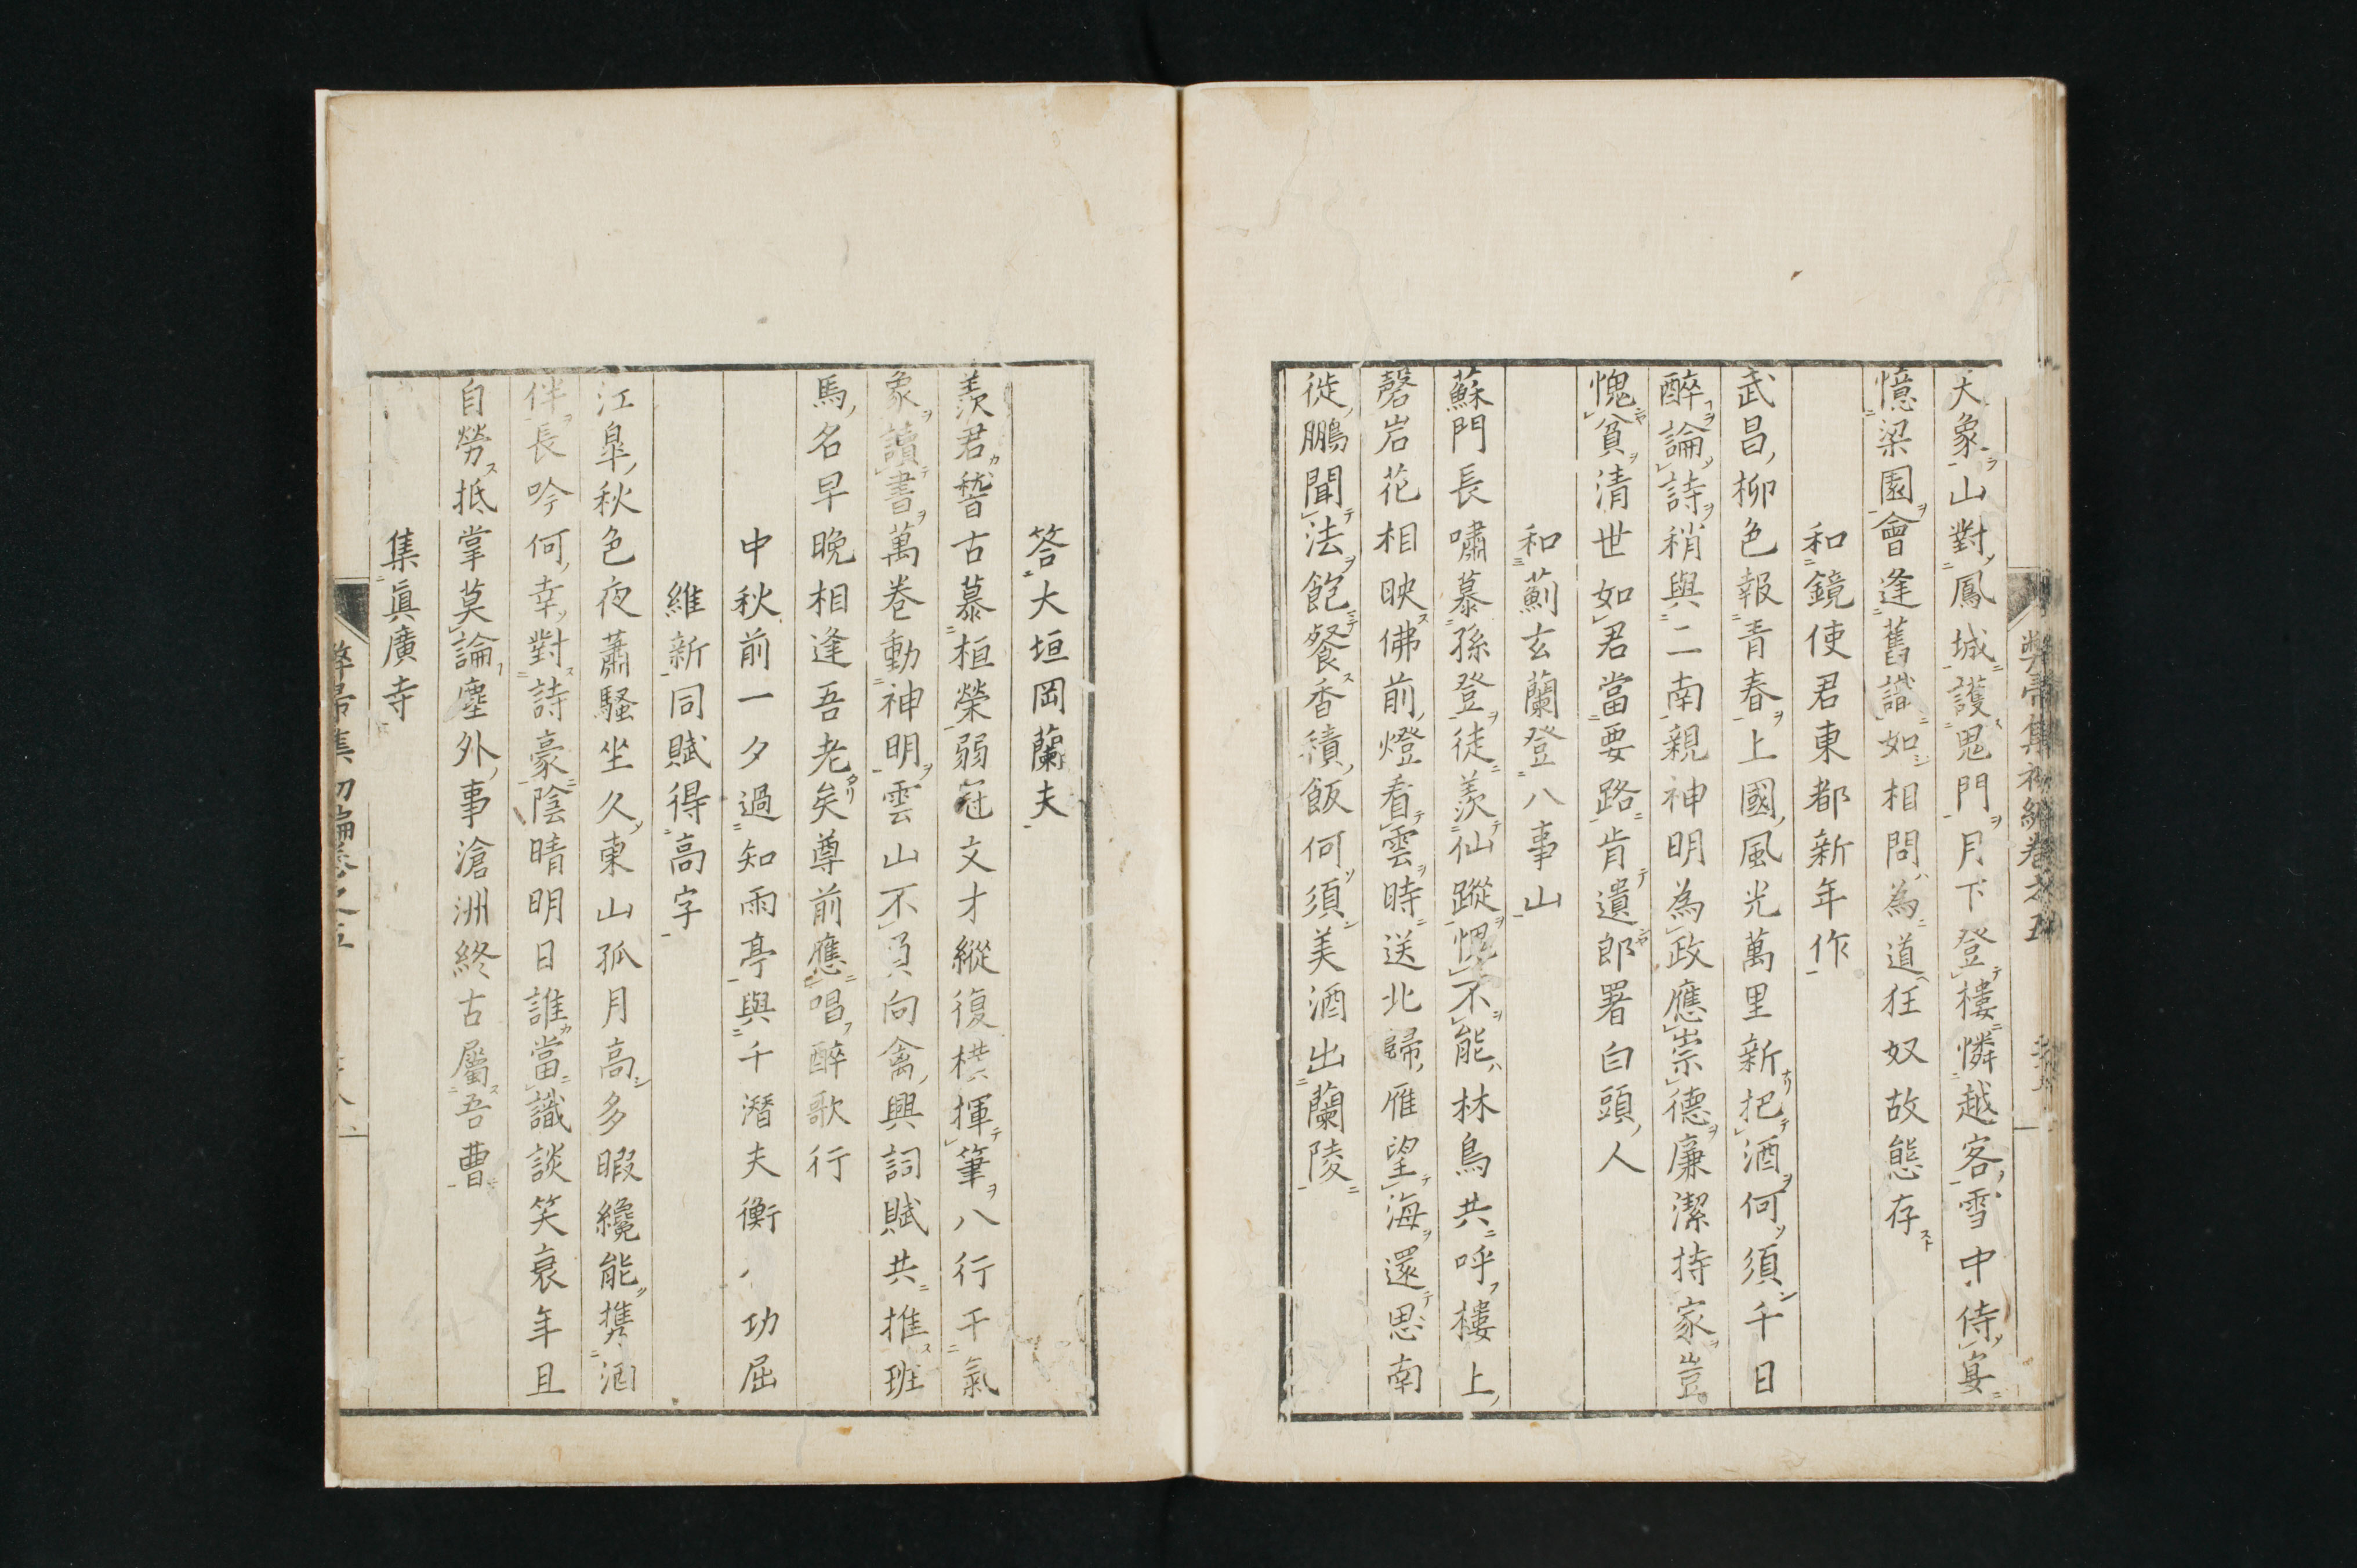 天象山對鳳城護鬼門月下登樓憐越客雪中侍宴
憶梁園會逢舊識如相問為道狂奴故態存
和鏡使君東都新年作
武昌柳色報青春上國風光萬里新把酒何須千日
醉論詩稍與二南親神明為政應崇德廉潔持家豈
愧貧清世如君當要路肯遺郎署白頭人
和薊玄蘭登八事山
蘇門長嘯慕孫登徒羨仙蹤愧不能林鳥共呼樓上
磬岩花相映佛前燈看雲時送北歸雁望海還思南
徙鵬聞法飽餐香積飯何須美酒出蘭陵
答大垣岡蘭夫
羨君稽古慕桓榮弱冠文才縱復橫揮筆八行干氣
象讀書萬卷動神明雲山不負向禽興詞賦共推班
馬名早晚相逢吾老矣尊前應唱醉歌行
中秋前一夕過知雨亭與千潛夫衡功屈
維新同賦得高字
江皐秋色夜蕭騷坐久東山孤月高多暇纔能攜酒
伴長吟何幸對詩豪陰晴明日誰當識談笑衰年且
自勞抵掌莫論塵外事滄洲終古屬吾曹
集眞廣寺